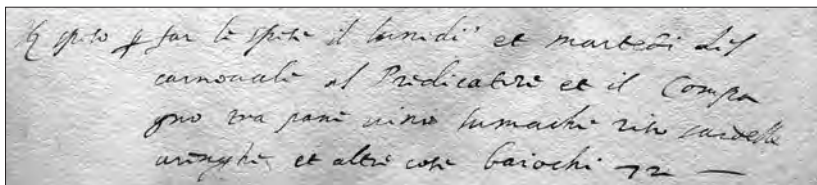 spese p far le spese il lunedi et martedi del
carnouale al Predicatore et il Compa
gno tra pane uino lumache riso sardelle
aringhe et altre cose baiochi 72 —